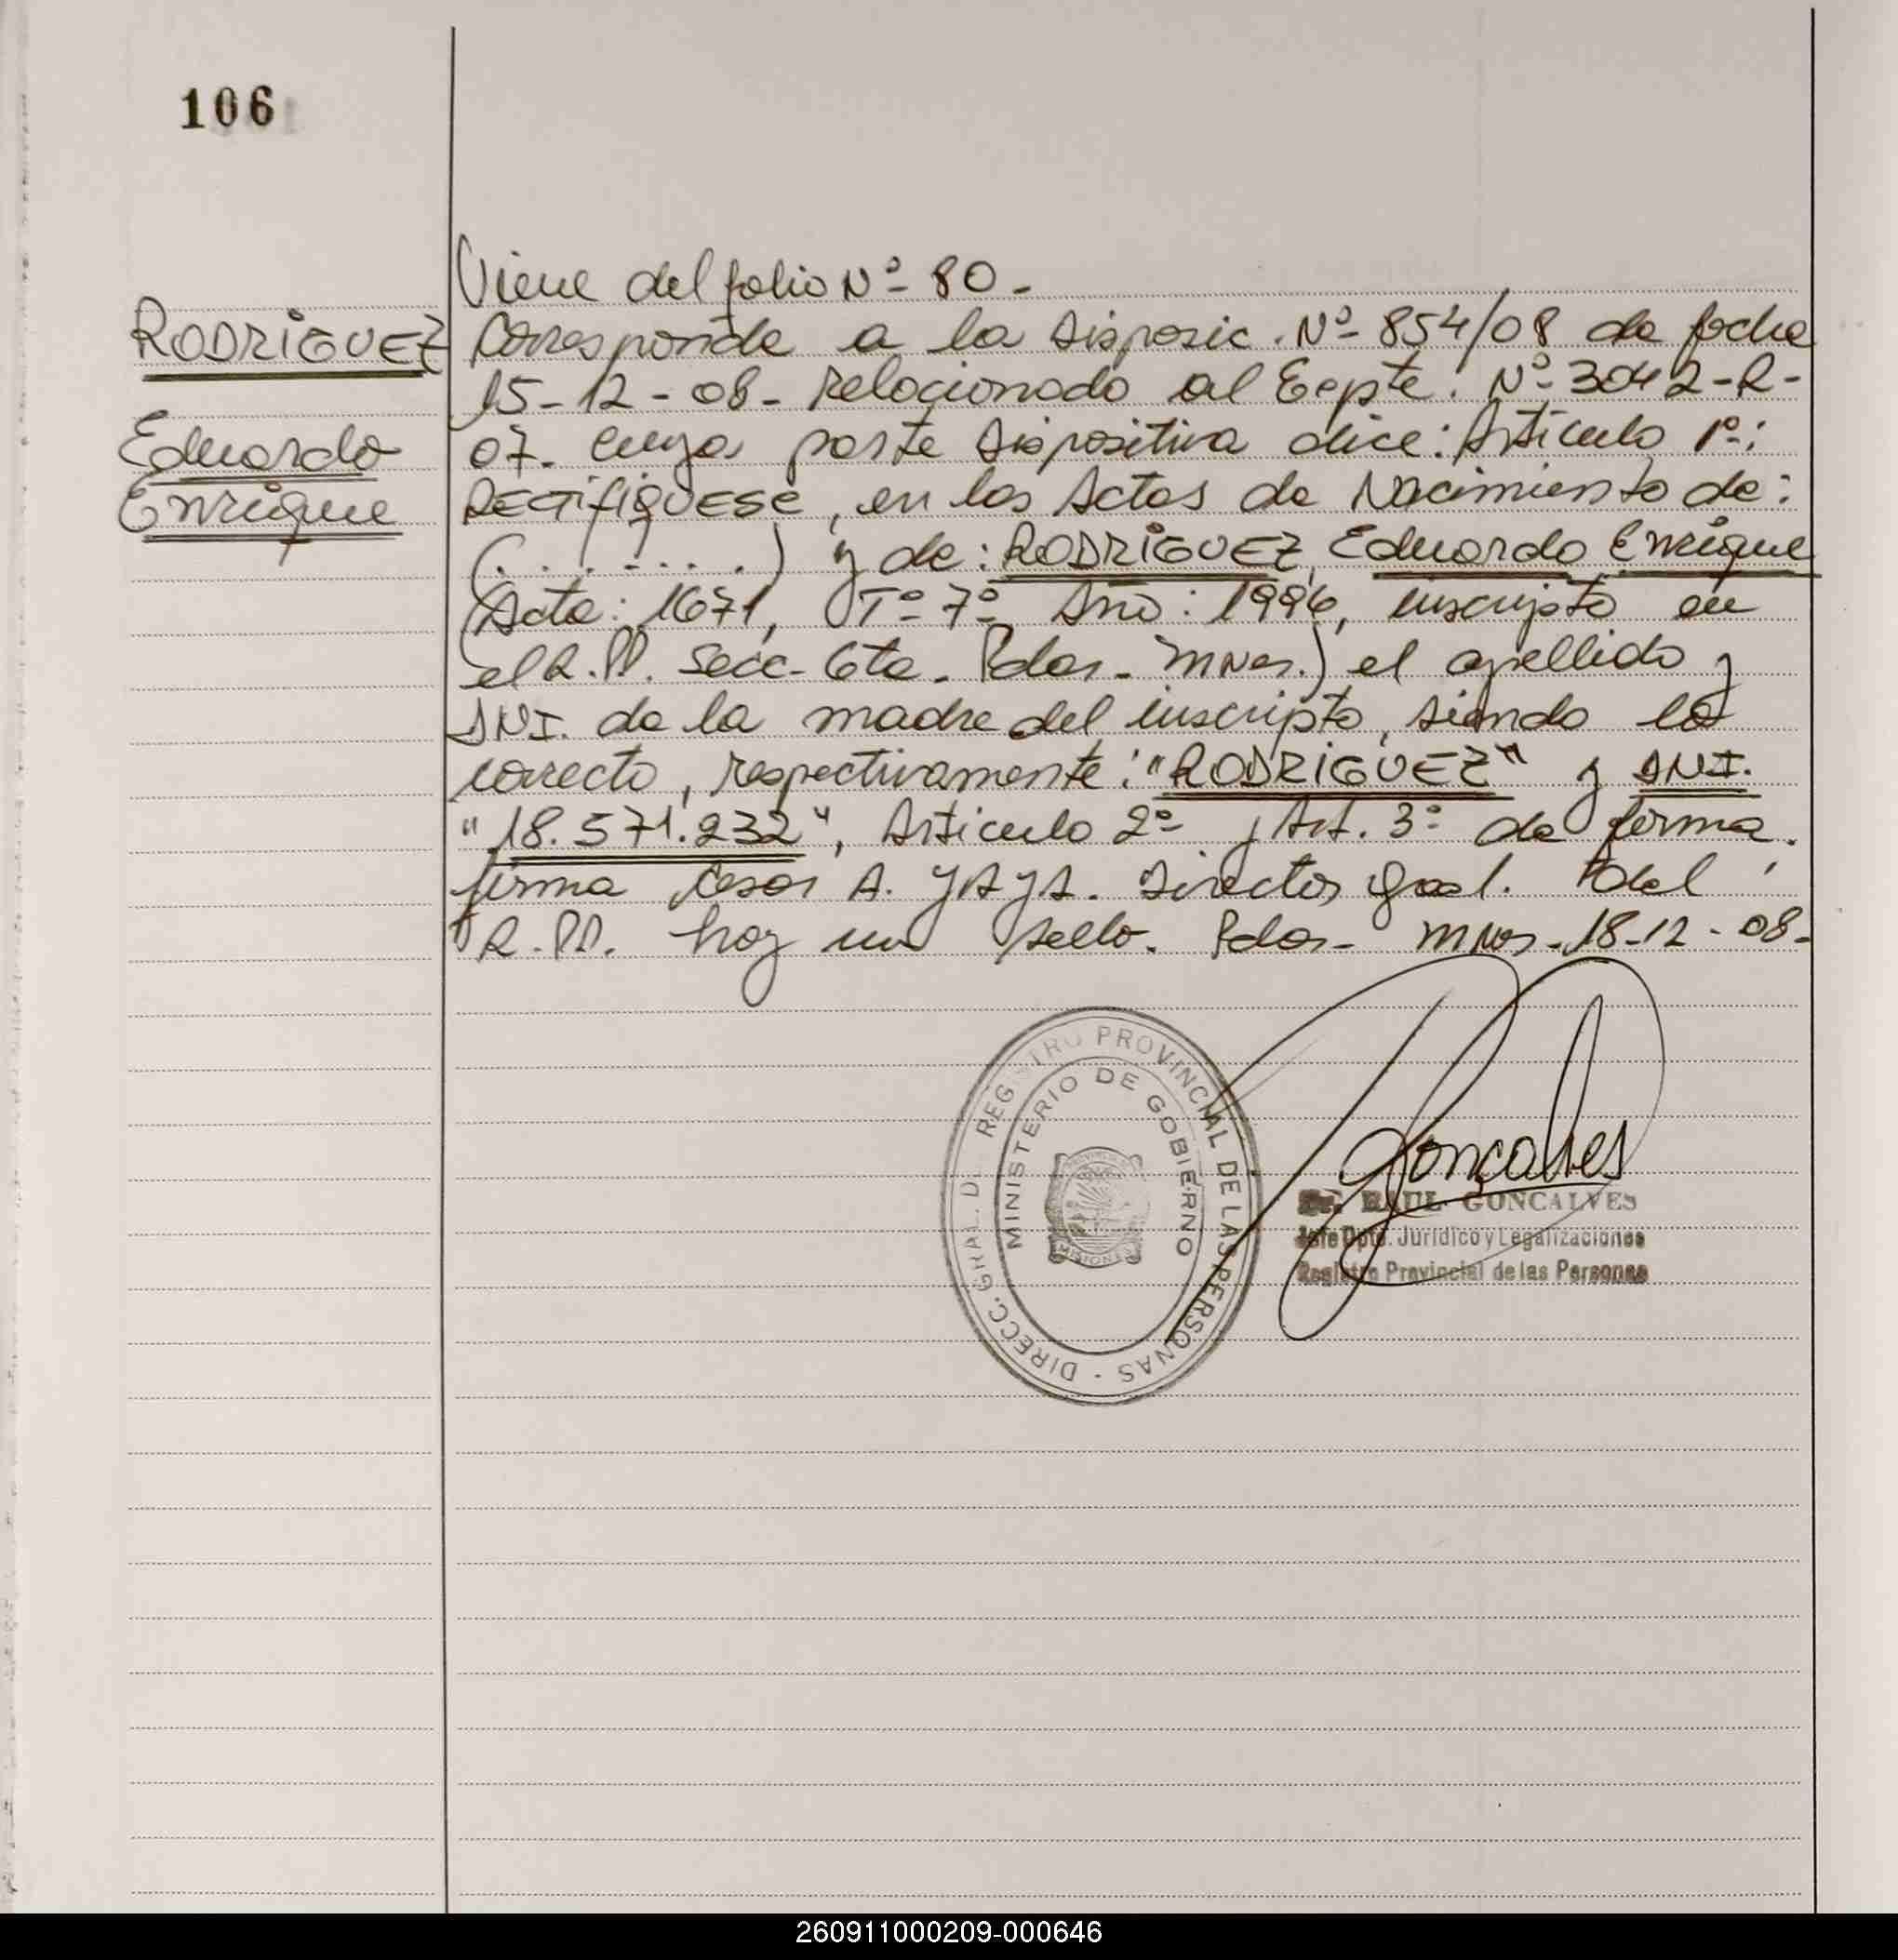 106
RODRÍGUEZ
Eduardo
Enrique
Viene del folio Nº 80.
Corresponde a la Disposic. Nº 854/08 de fecha
15-12-08- relacionado al Expte. Nº 3042-R-
07. Cuya parte dispositiva dice: Artículo 1º:
RECTIFIQUESE, en las Actas de Nacimiento de:
(........) y de: RODRÍGUEZ, Eduardo Enrique
(Acta: 1671, Tº 7º Año: 1996, inscripto en
el R.PP. Secc- 6ta. Pdas- Mnes.) el apellido y
DNI. de la madre del inscripto, siendo lo
correcto, respectivamente: "RODRÍGUEZ" y DNI.
"18.571.232", Artículo 2º y Art. 3º de forma.
firma Cesar A. Director Gral. del
R.PP. hay un sello. Pdas- Mnes-18-12-08-
DIRECC. GRAL. D REGISTRO PROVINCIAL DE LAS PERSONAS
MINISTERIO DE GOBIERNO
MISIONES
Goncalves
Dr. RAUL GONCALVES
Jefe Dpto. Jurídico y Legalizaciones
Registro Provincial de las Personas
260911000209-000646